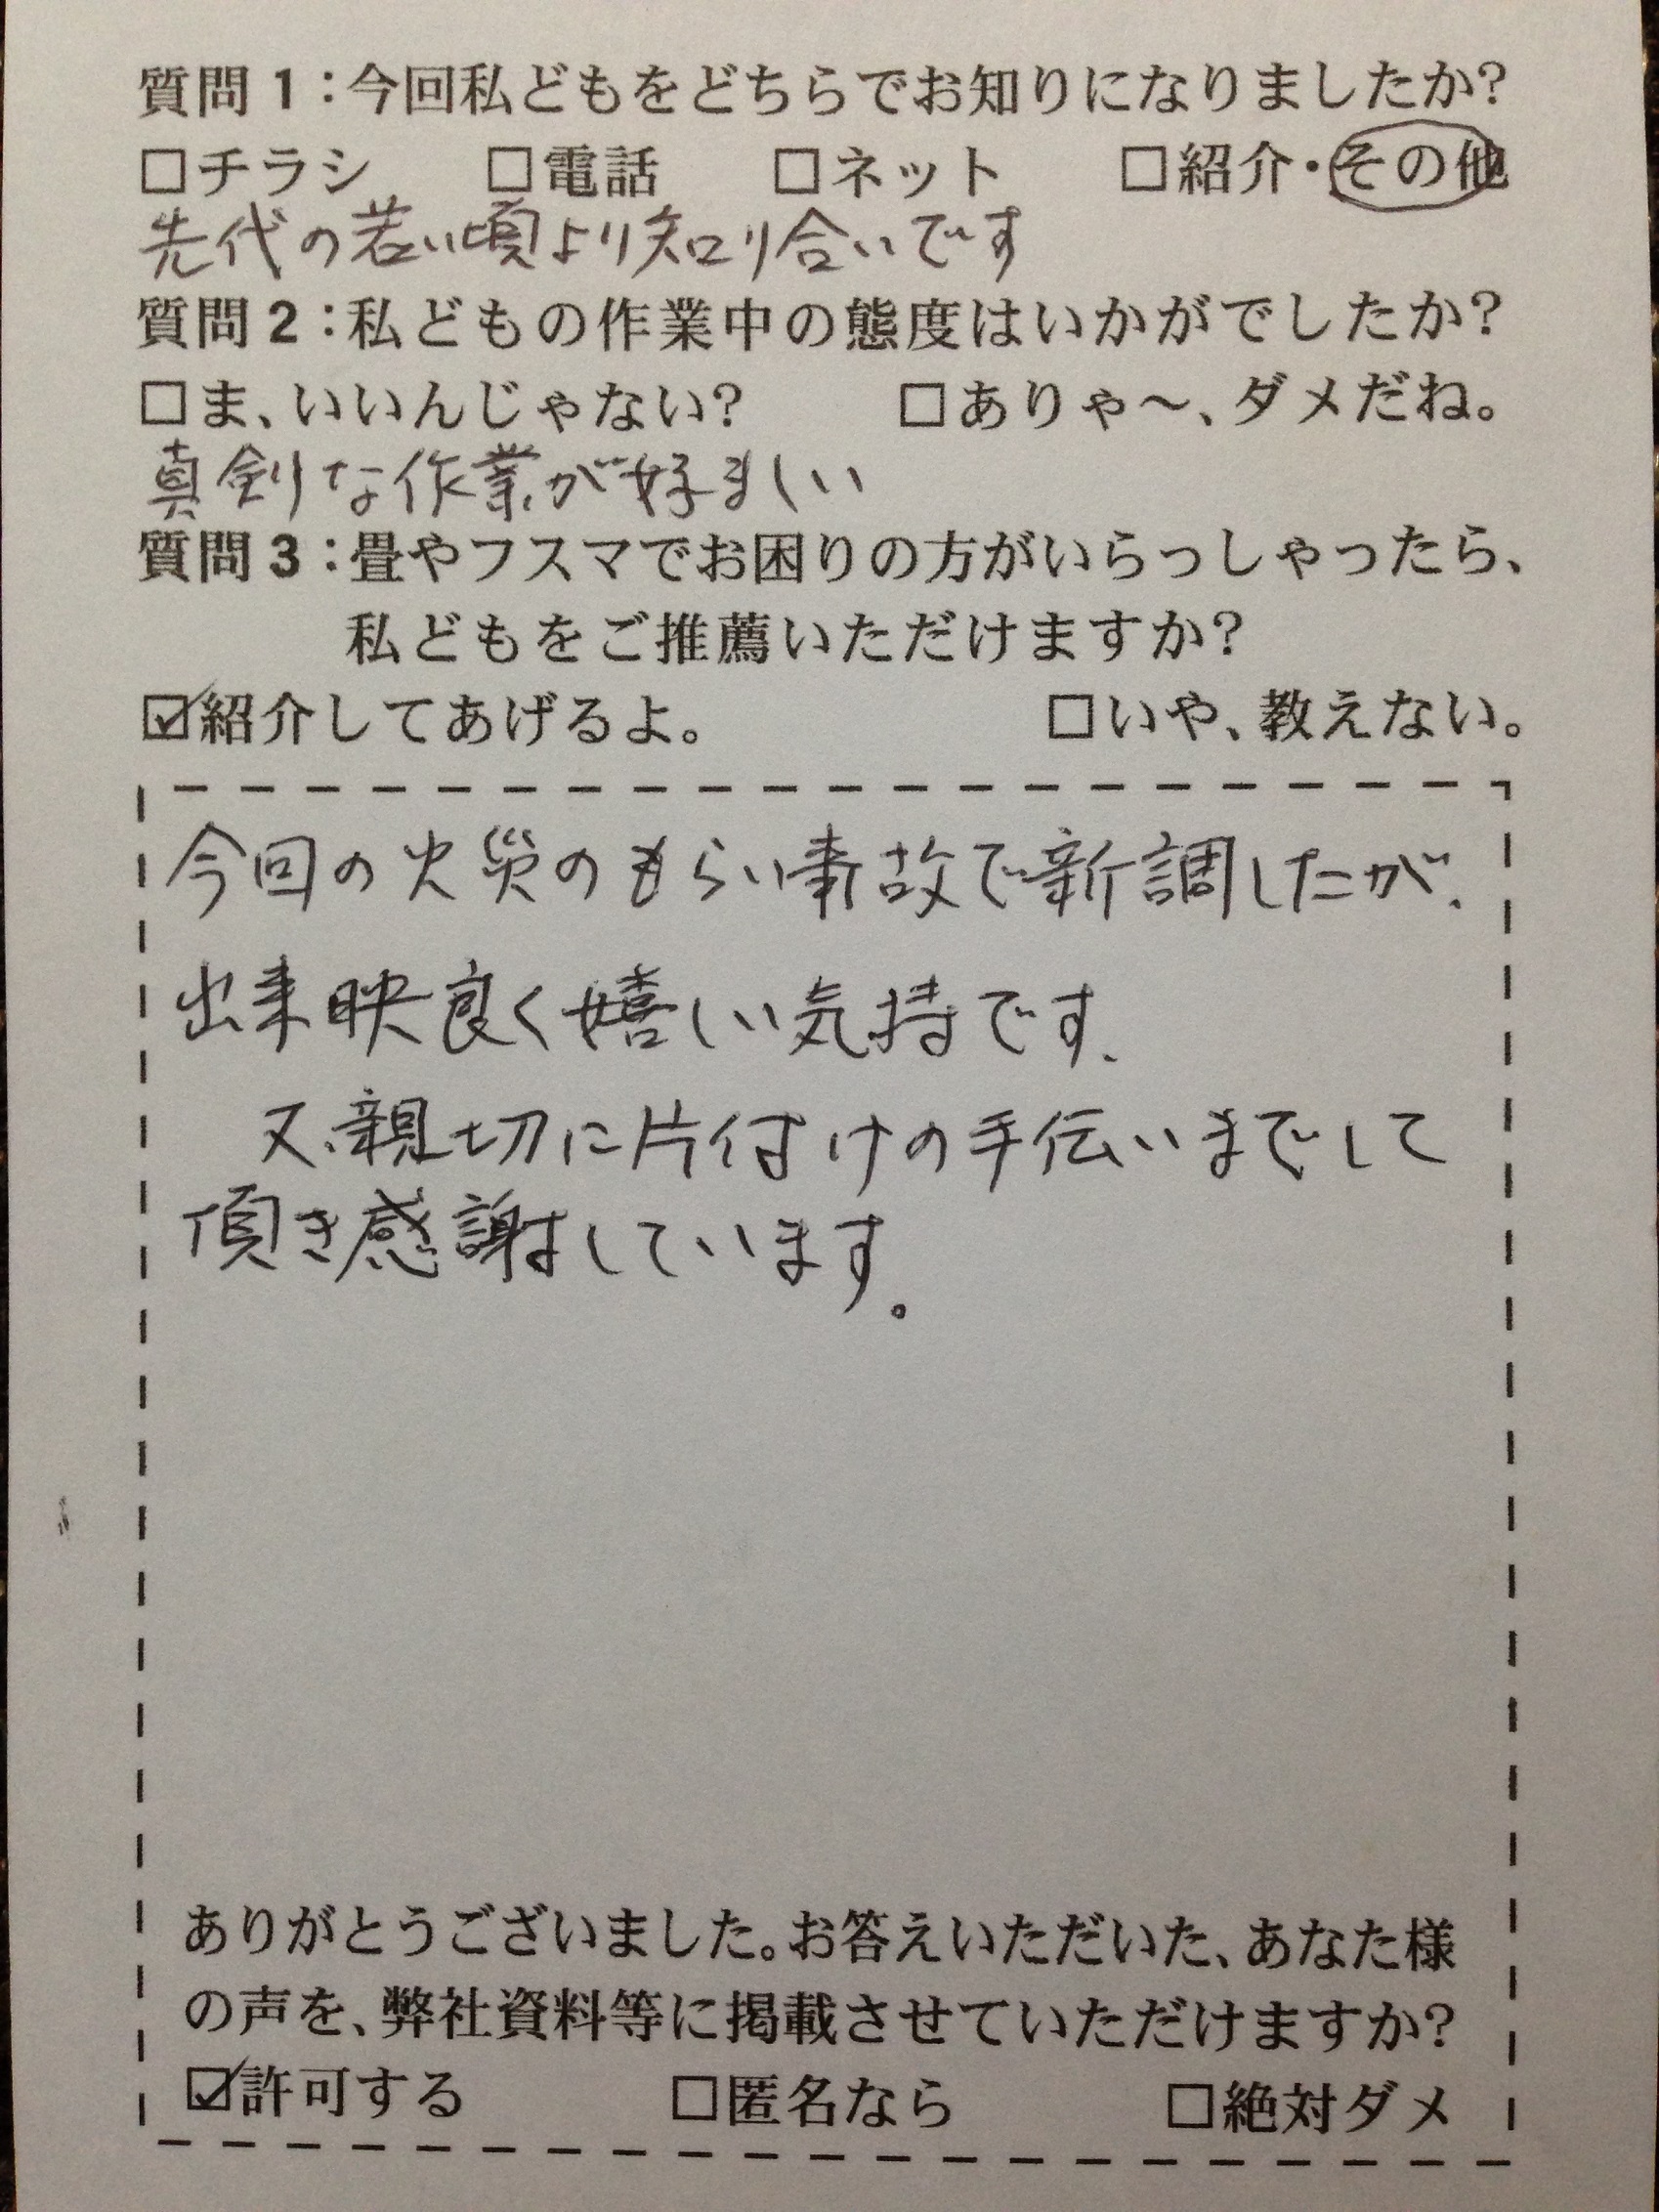 質問1:今回私どもをどちらでお知りになりましたか?
□チラシ □電話 □ネット □紹介・その他
先代の若い頃より知り合いです
質問2:私どもの作業中の態度はいかがでしたか?
□ま、いいんじゃない? □ありゃ〜、ダメだね。
真剣な作業が好ましい
質問3:畳やフスマでお困りの方がいらっしゃったら、
私どもをご推薦いただけますか?
☑紹介してあげるよ。 □いや、教えない。
今回の火災のもらい事故で新調したが、
出来映良く嬉しい気持です、
又、親切に片付けの手伝いまでして
頂き感謝しています。
ありがとうございました。お答えいただいた、あなた様
の声を、弊社資料等に掲載させていただけますか?
☑許可する □匿名なら □絶対ダメ